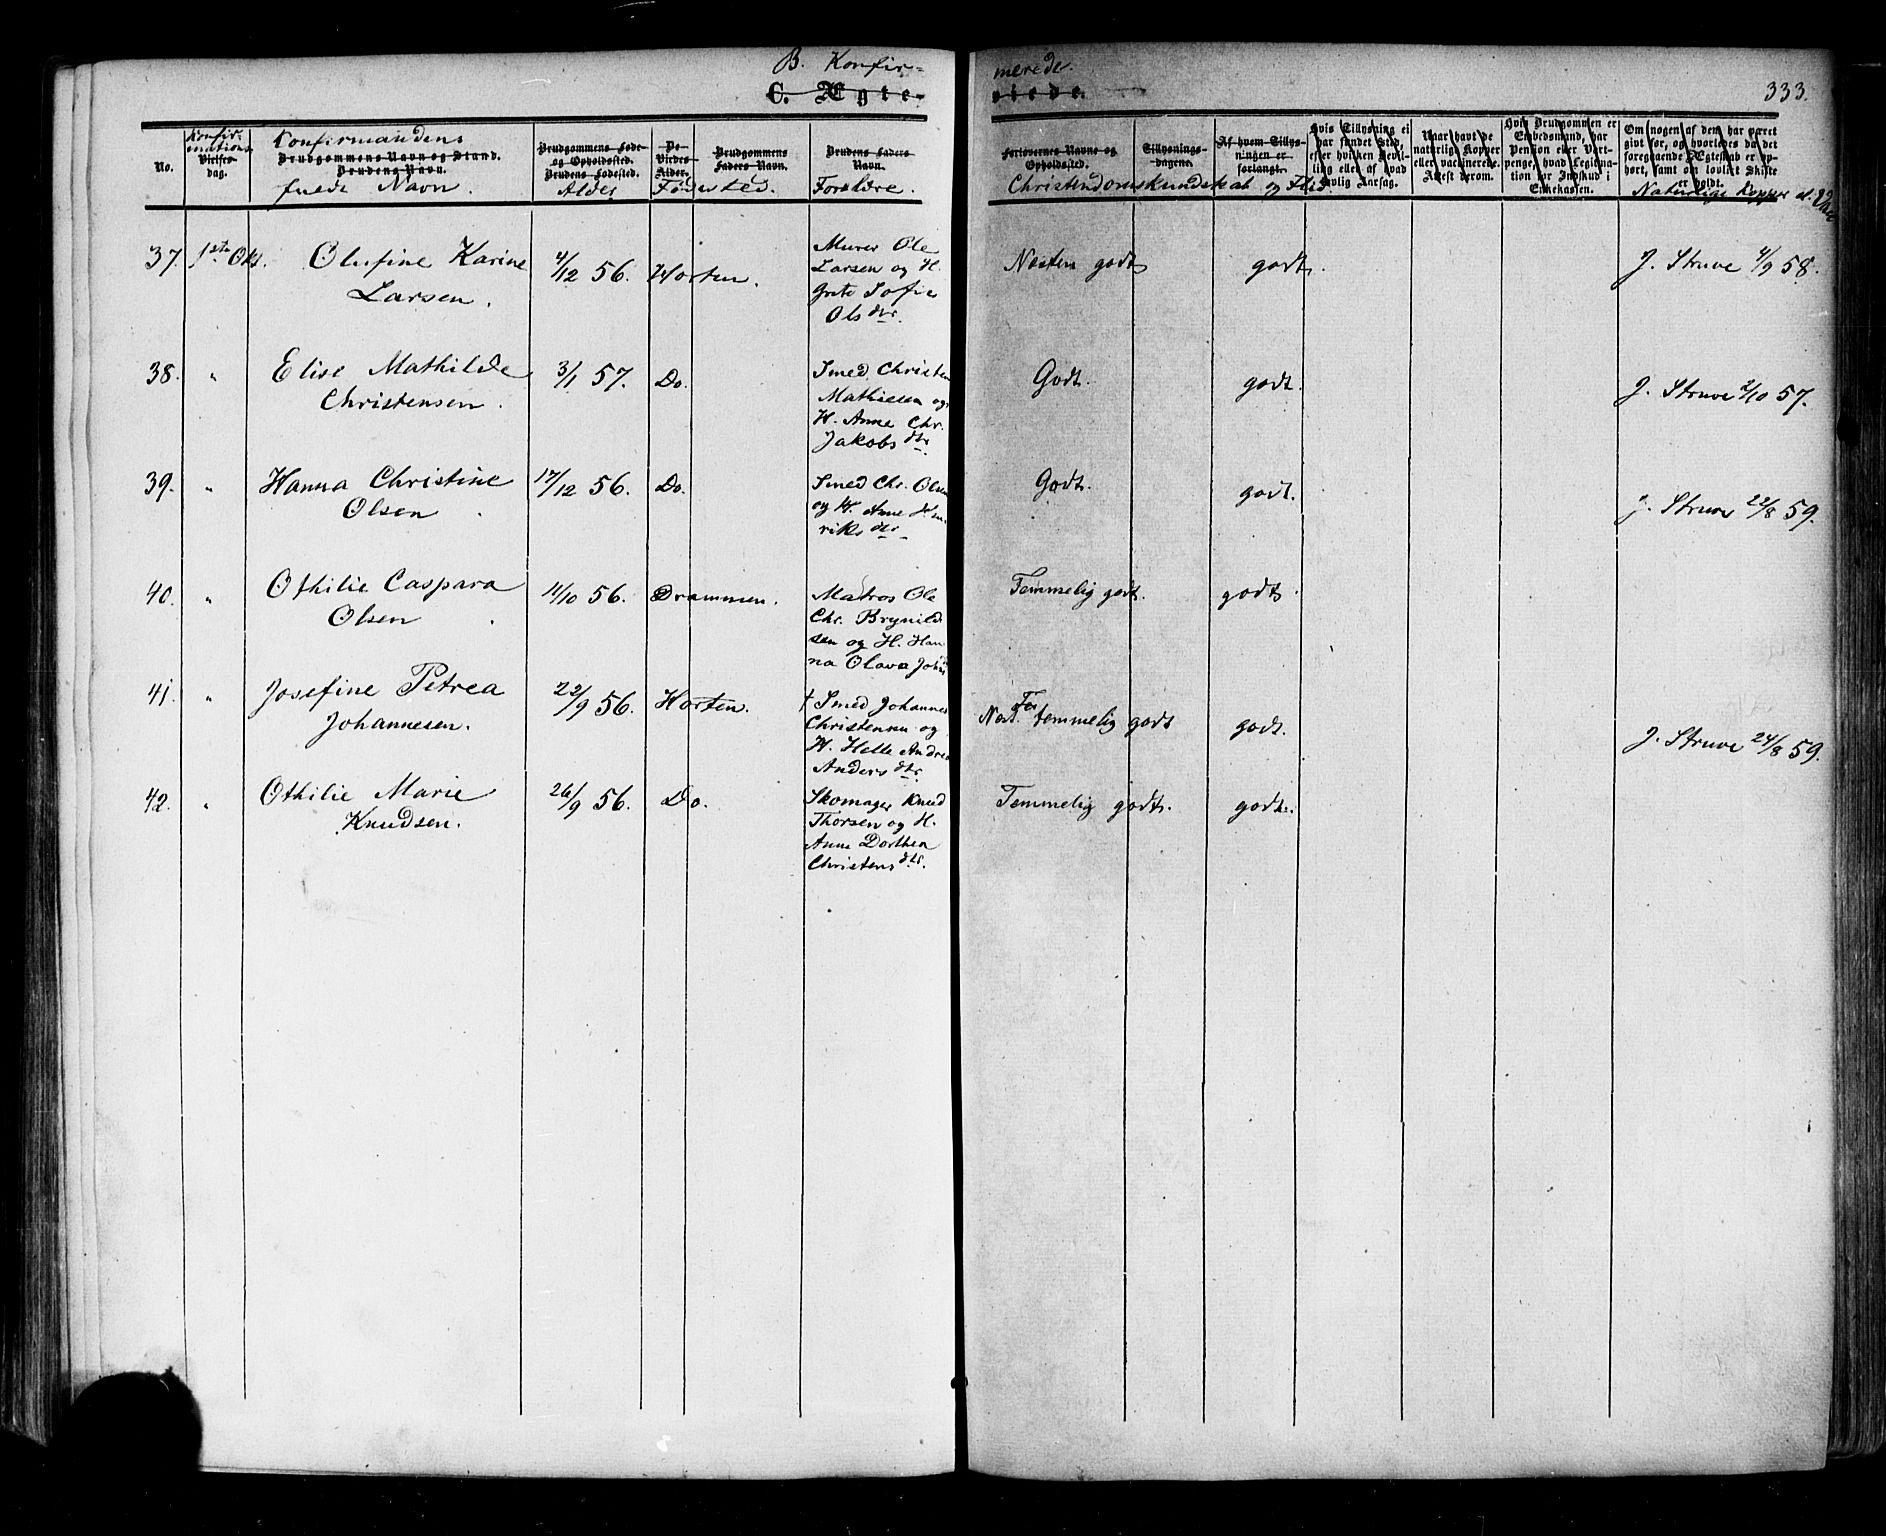 B. Konfir=
merede.
C. Ægte-
viede.
333.
No.
Konfir-
mations
Vielses-
dag.
Konfirmandens
Brudgommens Navn og Stand.
Brudens Navn.
fulde Navn.
Brudgommens Føde-
og Opholdssted.
Brudens Fødested.
Alder
De
Viedes
Alder.
Brudgommens
Faders Navn.
Fødested.
Brudens Faders
Navn.
Forældre.
Forlovernes Navne og
Opholdssted.
Tillysnings-
dagene.
Af hvem Tillys-
ningen er
forlangt.
Christendomskundskab og Flid.
Hvis Tillysning ei
har fundet Sted,
efter hvilken Bevil-
ling eller af hvad
lovlig Aarsag.
Naar havt de
naturlige Kopper
eller vaccinerede.
Attest derom.
Hvis Brudgommen er
Embedsmand, har
Pension eller Vart-
penge, hvad Legitima-
tion for Indskud i
Enkekassen.
Om nogen af dem har været
givt før, og hvorledes da det
foregaaende Ægteskab er op-
hørt, samt om lovligt Skifte
er holdt.
Naturlige Kopper el. Vac
37. 1ste Okt. Olufine Karine 4/12 56. Horten. Murer Ole Næsten godt godt. J. Struve 4/9 58.
Larsen. Larsen og H.
Grete Sofie
Olsdtr.
38. " Elise Mathilde 3/1 57. Do. Smed Christen Godt. godt. J. Struve 2/10 57.
Christensen. Mathiesen og
H. Anne Chr.
Jakobsdtr.
39. " Hanna Christine 17/12 56. Do. Smed Chr. Olsen Godt. godt. J. Struve 22/8 59.
Olsen. og H. Anne Hen-
riksdtr.
40. " Othilie Caspara 11/10 56. Drammen. Matros Ole Temmelig godt. godt.
Olsen. Chr. Brynild
sen og H. Han
na Olava
41. " Josefine Petrea 22/9 56. Horten. † Smed Johannes temmelig godt godt. J. Struve 24/8 59.
Johannesen. Christensen og
H. Helle Andrea
Andersdtr.
42. " Othilie Marie 26/9 56. Do. Skomager Knud Temmelig godt. godt.
Knudsen. Thorsen og H.
Anne Dorthea
Christensdtr.